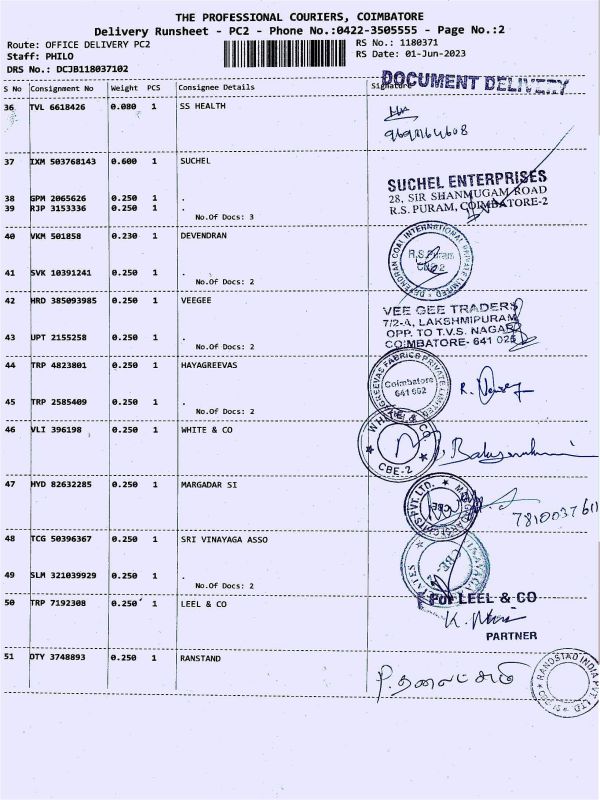 THE PROFESSIONAL COURIERS, COIMBATORE
Delivery Runsheet - PC2 - Phone No.:0422-3505555 - Page No.:2
Route: OFFICE DELIVERY PC2 RS No.: 1180371
Staff: PHILO RS Date: 01-Jun-2023
DRS No.: DCJB118037102
DOCUMENT DELIVERY
S No Consignment No Weight PCS Consignee Details Signature
36 TVL 6618426 0.080 1 SS HEALTH
37 IXM 503768143 0.600 1 SUCHEL
SUCHEL ENTERPRISES
28, SIR SHANMUGAM ROAD
R.S. PURAM, COIMBATORE-2
38 GPM 2065626 0.250 1 .
39 RJP 3153336 0.250 1 .
No.Of Docs: 3
40 VKM 501858 0.230 1 DEVENDRAN
DEVENDRAN COAL INTERNATIONAL PRIVATE LIMITED
R.S.Puram
CBE-2
41 SVK 10391241 0.250 1 .
No.Of Docs: 2
42 HRD 385093985 0.250 1 VEEGEE
VEE GEE TRADERS
7/2-A, LAKSHMIPURAM
OPP. TO T.V.S. NAGAR
COIMBATORE- 641 025
43 UPT 2155258 0.250 1 .
No.Of Docs: 2
44 TRP 4823801 0.250 1 HAYAGREEVAS
FABRICS PRIVATE LIMITED
Coimbatore
641 652
45 TRP 2585409 0.250 1 .
No.Of Docs: 2
46 VLI 396198 0.250 1 WHITE & CO
WHITE & CO
CBE-2
47 HYD 82632285 0.250 1 MARGADAR SI
PVT. LTD.
CBE
48 TCG 50396367 0.250 1 SRI VINAYAGA ASSO
49 SLM 321039929 0.250 1 .
No.Of Docs: 2
50 TRP 7192308 0.250 1 LEEL & CO
For LEEL & CO
PARTNER
51 OTY 3748893 0.250 1 RANSTAND
RANDSTAD INDIA PVT LTD